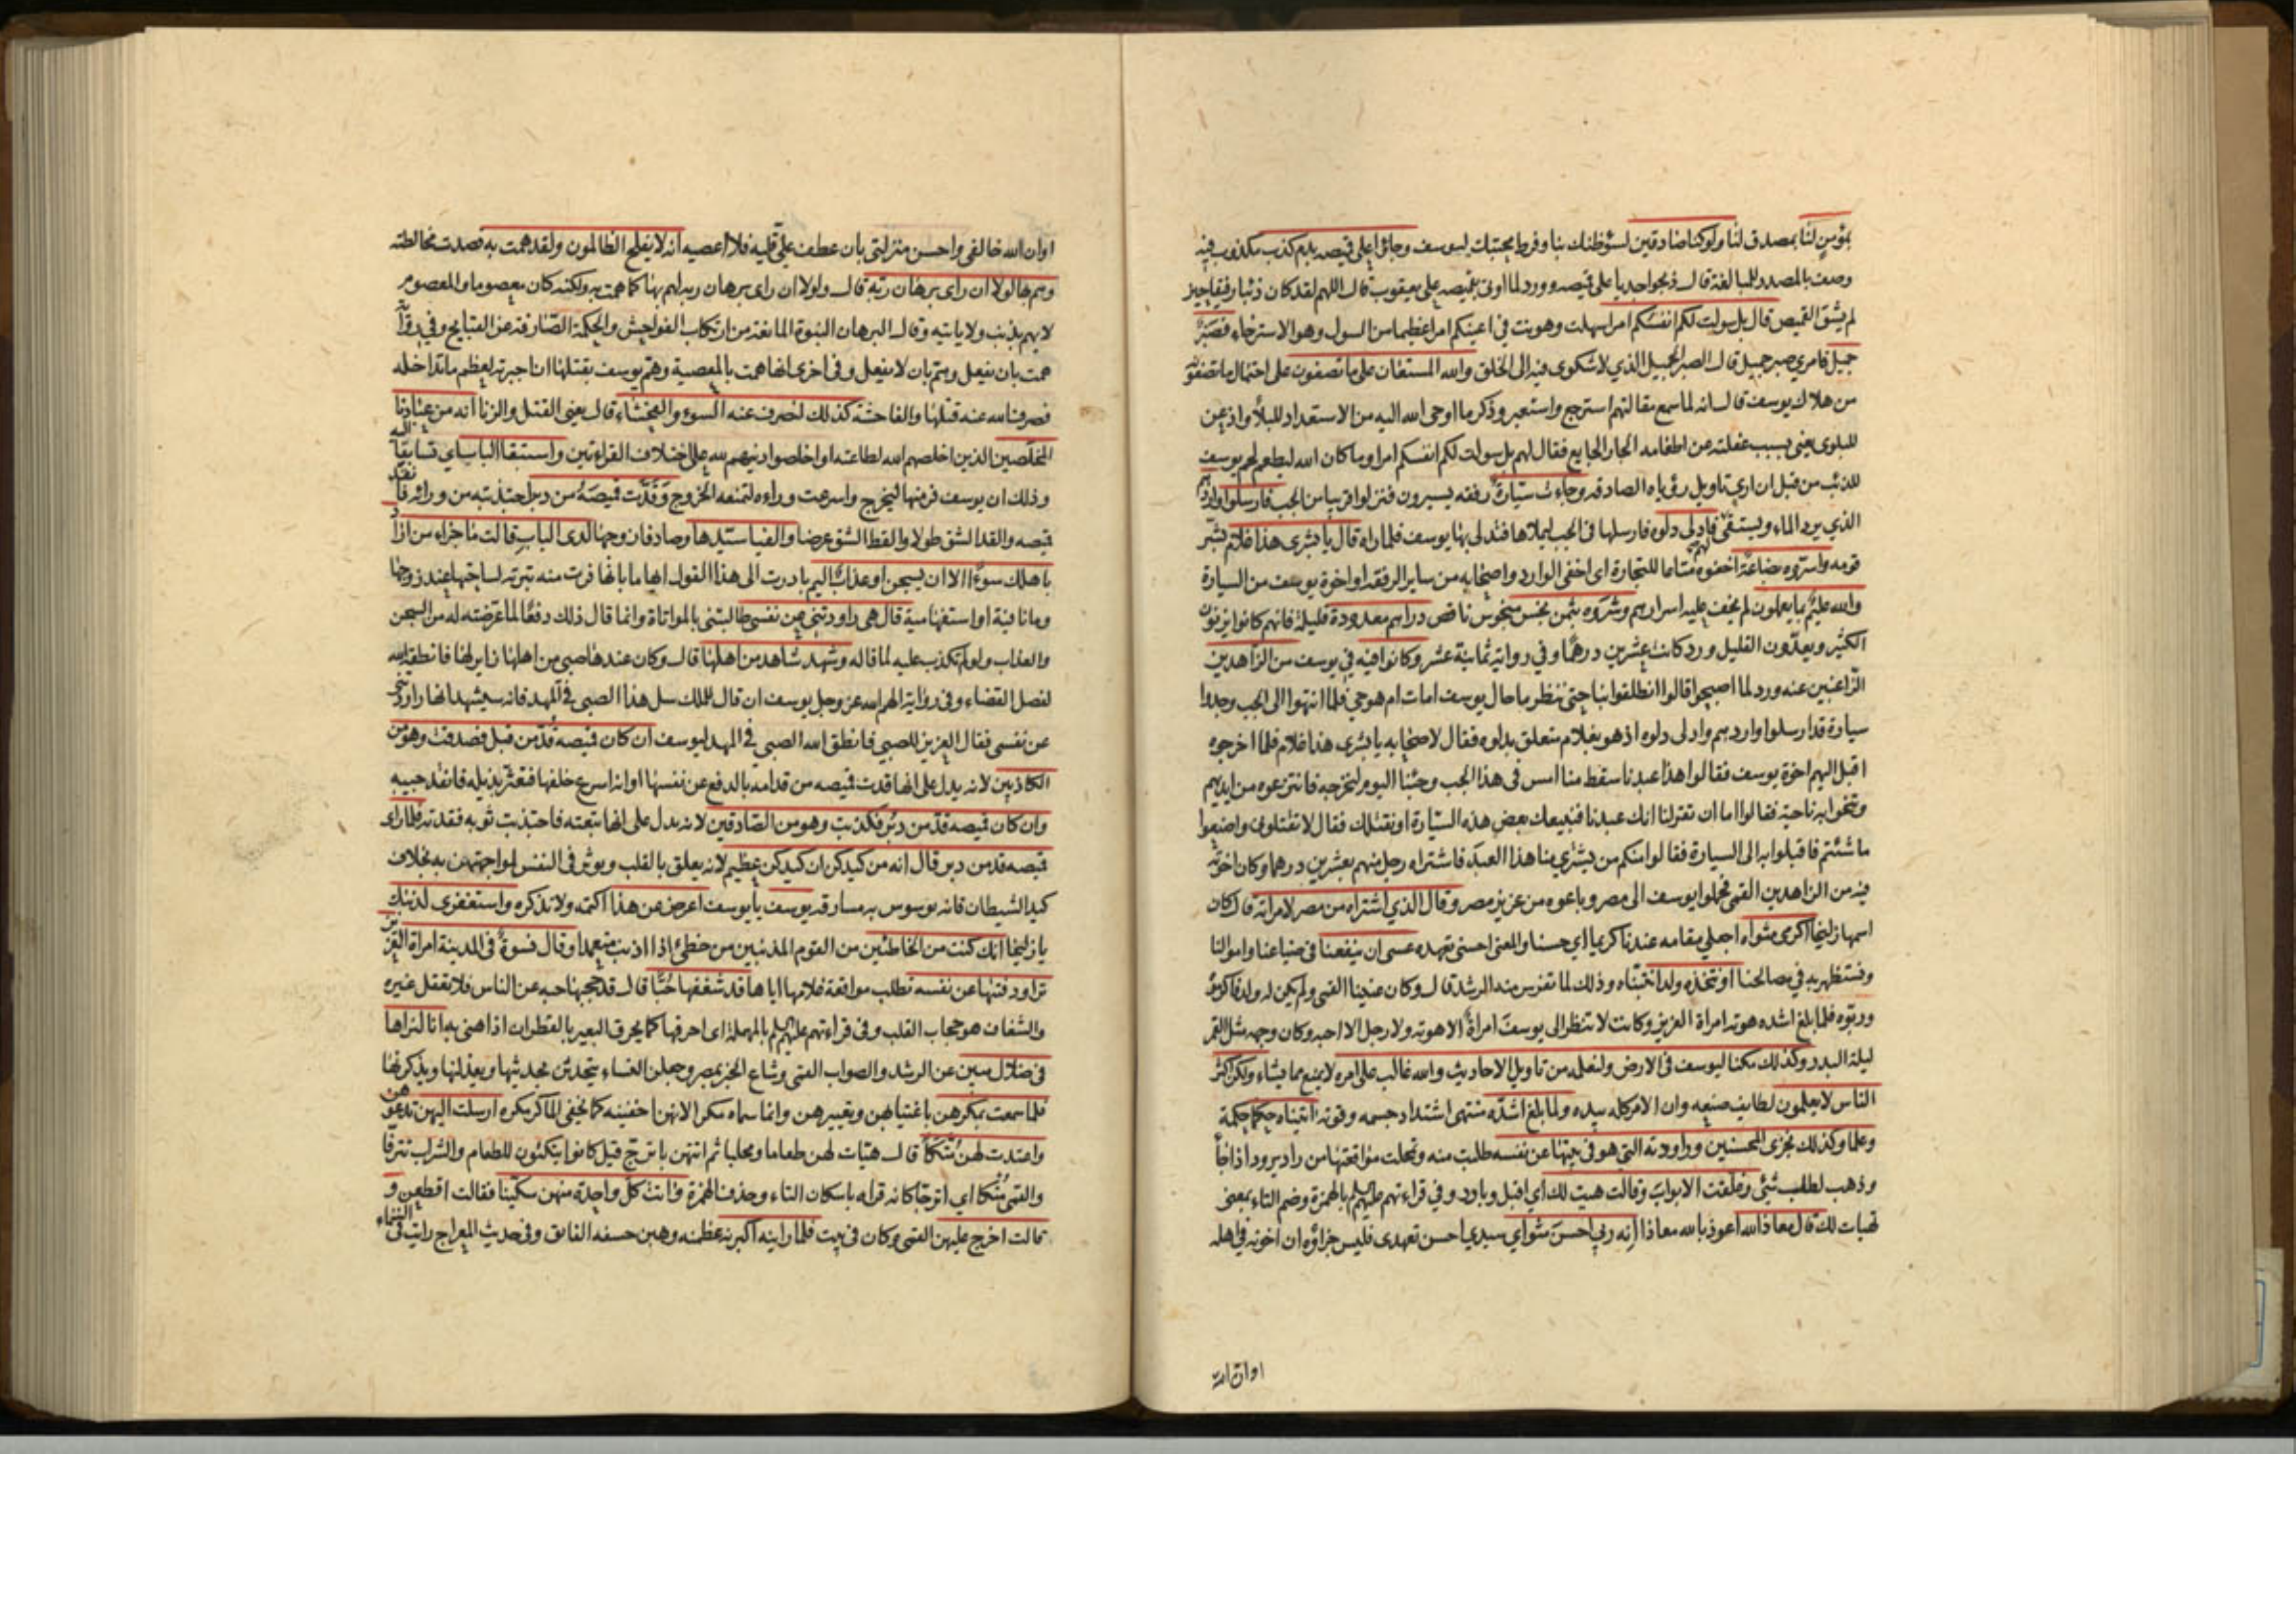 بمؤمن لنا بمصدق لنا ولو كنا صادقين لسوء ظنك بنا وفرط محبتك ليوسف وجاؤا على قميصه بدم كذب مكذوب فيه
وصف بالمصدر للمبالغة قال ذبحوا جديا على قميصه وورد لما اوتي بقميصه على يعقوب قال اللهم لقد كان ذئبا رفيقا حين
لم يشق القميص قال بل سولت لكم انفسكم امرا سهلت وهونت في اعينكم امرا عظيما من السول وهو الاسترخاء فصبر
جميل فامري صبر جميل قال الصبر الجميل الذي لا شكوى فيه الى الخلق والله المستعان على ما تصفون على احتمال ما تصفون
من هلاك يوسف قال انه لما سمع مقالتهم استرجع واستعبر وذكر ما اوحى الله اليه من الاستعداد للبلاء واذعن
للبلوى يعني بسبب غفلته عن اطعامه الجار الجايع فقال لهم بل سولت لكم انفسكم امرا وما كان الله ليطعم لحم يوسف
للذئب من قبل ان ارى تاويل رؤياه الصادقه وجاءت سيارة رفقه يسيرون فنزلوا قريبا من الجب فارسلوا واردهم
الذي يرد الماء ويستقي لهم فادلى دلوه فارسلها في الجب ليملاها فتدلى بها يوسف فلما راه قال يا بشرى هذا غلام بشر
قومه واسروه بضاعة اخفوه متاعا للتجارة اى اخفى الوارد واصحابه من ساير الرفقه او اخوة يوسف من السيارة
والله عليم بما يعملون لم يخف عليه اسرارهم وشروه بثمن بخس مبخوس ناقص دراهم معدودة قليلة فانهم كانوا يزنون
الكثير ويعدون القليل ورد كانت عشرين درهما وفي رواية ثمانية عشر وكانوا فيه في يوسف من الزاهدين
الراغبين عنه ورد لما اصبحوا قالوا انطلقوا بنا حتى ننظر ما حال يوسف امات ام هو حي فلما انتهوا الى الجب وجدوا
سيارة قد ارسلوا واردهم وادلى دلوه اذ هو بغلام متعلق بدلوه فقال لاصحابه يا بشرى هذا غلام فلما اخرجوه
اقبل اليهم اخوة يوسف فقالوا هذا عبدنا سقط منا امس في هذا الجب وجئنا اليوم لنخرجه فانتزعوه من ايديهم
وتنحوا به ناحية فقالوا اما ان تقر لنا انك عبدنا فنبيعك بعض هذه السيارة او نقتلك فقال لا تقتلوني واصنعوا
ما شئتم فاقبلوا به الى السيارة فقالوا منكم من يشتري منا هذا العبد فاشتراه رجل منهم بعشرين درهما وكان اخوته
فيه من الزاهدين القمي فحملوا يوسف الى مصر وباعوه من عزيز مصر وقال الذي اشتراه من مصر لامراته قال كان
اسمها زليخا اكرمى مثواه اجعلي مقامه عندنا كريما اي حسنا والمعنى احسنى تعهده عسى ان ينفعنا في ضياعنا واموالنا
ونستظهر به في مصالحنا او نتخذه ولدا نتبناه وذلك لما تفرس منه الرشد قال وكان عنينا القمي ولم يكن له ولد فاكرموه
وربوه فلما بلغ اشده هوته امراة العزيز وكانت لا تنظر الى يوسف امراة الا هوته ولا رجل الا احبه وكان وجهه مثل القمر
ليلة البدر وكذلك مكنا ليوسف في الارض ولنعلمه من تاويل الاحاديث والله غالب على امره لا يمنع مما يشاء ولكن اكثر
الناس لا يعلمون لطايف صنعه وان الامر كله بيده ولما بلغ اشده منتهى اشتداد جسمه وقوته اتيناه حكما حكمة
وعلما وكذلك نجزي المحسنين وراودته التي هو في بيتها عن نفسه طلبت منه وتمحلت مواقعتها من راد يرود اذا جاء
وذهب لطلب شئ وغلقت الابواب وقالت هيت لك اي اقبل وبادر وفي قراءتهم عليهم السلم بالهمزة وضم التاء بمعنى
تهيات لك قال معاذ الله اعوذ بالله معاذا انه ربي احسن مثواي سيدي احسن تعهدى فليس جزاؤه ان اخونه في اهله
او ان الله
او ان الله خالقى واحسن منزلتى بان عطف على قلبه فلا اعصيه انه لا يفلح الظالمون ولقد همت به قصدت مخالطته
وهم بها لولا ان راى برهان ربه قال ولولا ان راى برهان ربه لهم بها كما همت به ولكنه كان معصوما والمعصوم
لا يهم بذنب ولا ياتيه وقال البرهان النبوة المانعة من ارتكاب الفواحش والحكمة الصارفة عن القبايح وفي رواية
همت بان يفعل وهم بان لا يفعل وفى اخرى انها همت بالمعصية وهم يوسف بقتلها ان اجبرته لعظم ما تداخله
فصرف الله عنه قتلها والفاحشة كذلك لنصرف عنه السوء والفحشاء قال يعنى القتل والزنا انه من عبادنا
المخلصين الذين اخلصهم الله لطاعته او اخلصوا دينهم لله على اختلاف القراءتين واستبقا الباب اي تسابقا اليه
وذلك ان يوسف فر منها ليخرج واسرعت وراءه لتمنعه الخروج وقدت قميصه من دبر اجتذبته من ورائه فانقد
قميصه والقد الشق طولا والقط الشق عرضا والفيا سيدها وصادفا زوجها لدى الباب قالت ما جزاء من اراد
باهلك سوءا الا ان يسجن او عذاب اليم بادرت الى هذا القول ايهاما بانها فرت منه تبرئة لساحتها عند زوجها
وما نافية او استفهامية قال هى راودتنى عن نفسى طالبتنى بالمواتاة وانما قال ذلك دفعا لما عرضته له من السجن
والعذاب ولو لم تكذب عليه لما قاله وشهد شاهد من اهلها قال وكان عندها صبي من اهلها زاير لها فانطقه الله
لفصل القضاء وفى رواية الهم الله عز وجل يوسف ان قال للملك سل هذا الصبي في المهد فانه سيشهد انها راودتنى
عن نفسى فقال العزيز للصبي فانطق الله الصبي في المهد ليوسف ان كان قميصه قد من قبل فصدقت وهو من
الكاذبين لانه يدل على انها قدت قميصه من قدامه بالدفع عن نفسها او انه اسرع خلفها فتعثر بذيله فانقد جيبه
وان كان قميصه قد من دبر فكذبت وهو من الصادقين لانه يدل على انها تبعته فاجتذبت ثوبه فقدته فلما راى
قميصه قد من دبر قال انه من كيدكن ان كيدكن عظيم لانه يعلق بالقلب ويوثر في النفس لمواجهتهن به بخلاف
كيد الشيطان فانه يوسوس به مسارقه يوسف يا يوسف اعرض عن هذا اكتمه ولا تذكره واستغفرى لذنبك
يا زليخا انك كنت من الخاطئين من القوم المذنبين من خطئ اذا اذنب متعمدا وقال نسوة في المدينة امراة العزيز
تراود فتيها عن نفسه تطلب مواقعة غلامها اياها قد شغفها حبا قال قد حجبها حبه عن الناس فلا تعقل غيره
والشغاف هو حجاب القلب وفى قراءتهم عليهم السلم بالمهملة اى احرقها كما يحرق البعير بالقطران اذا هنى به انا لنراها
في ضلال مبين عن الرشد والصواب القمي وشاع الخبر بمصر وجعلن النساء يتحدثن بحديثها ويعذلنها ويذكرنها
فلما سمعت بمكرهن باغتيابهن وتعييرهن وانما سماه مكرا لانهن اخفينه كما يخفى الماكر مكره ارسلت اليهن تدعوهن
واعتدت لهن متكأ قال هيات لهن طعاما ومجلسا ثم اتتهن باترج قيل كانوا يتكئون للطعام والشراب تترفا
والقمي متكا اي اترجا كانه قراه باسكان التاء وحذف الهمزة واتت كل واحدة منهن سكينا فقالت اقطعن و
قالت اخرج عليهن القمي وكان في بيت فلما راينه اكبرنه عظمنه وهبن حسنه الفائق وفي حديث المعراج رايت في السماء